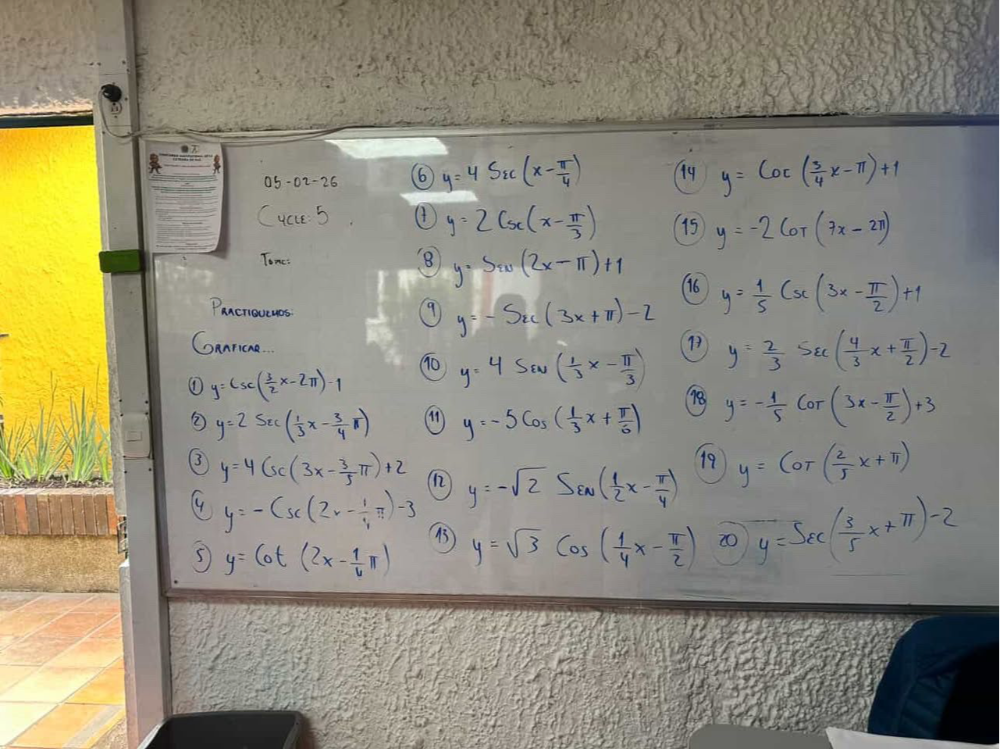 05-02-26
CYCLE: 5
TOPIC:
PRACTIQUEMOS.
GRAFICAR...
① y=Csc(3/2 x-2π)-1
② y=2 Sec(1/3 x-3/4 π)
③ y=4 Csc(3x-3/5 π)+2
④ y=-Csc(2x-1/4 π)-3
⑤ y=Cot (2x-1/4 π)
⑥ y=4 SEC(x-π/4)
⑦ y=2 Csc(x-π/3)
⑧ y=SEN(2x-π)+1
⑨ y=-SEC(3x+π)-2
⑩ y=4 SEN(1/3 x-π/3)
⑪ y=-5 Cos(1/3 x+π/6)
⑫ y=-√2 SEN(1/2 x-π/4)
⑬ y=√3 Cos (1/4 x-π/2)
⑭ y= (3/4 x-π)+1
⑮ y=-2 COT(7x-2π)
⑯ y=1/5 Csc(3x-π/2)+1
⑰ y=2/3 SEC(4/3 x+π/2)-2
⑱ y=-1/5 COT(3x-π/2)+3
⑲ y=COT(2/5 x+π)
⑳ y=SEC(3/5 x+π)-2